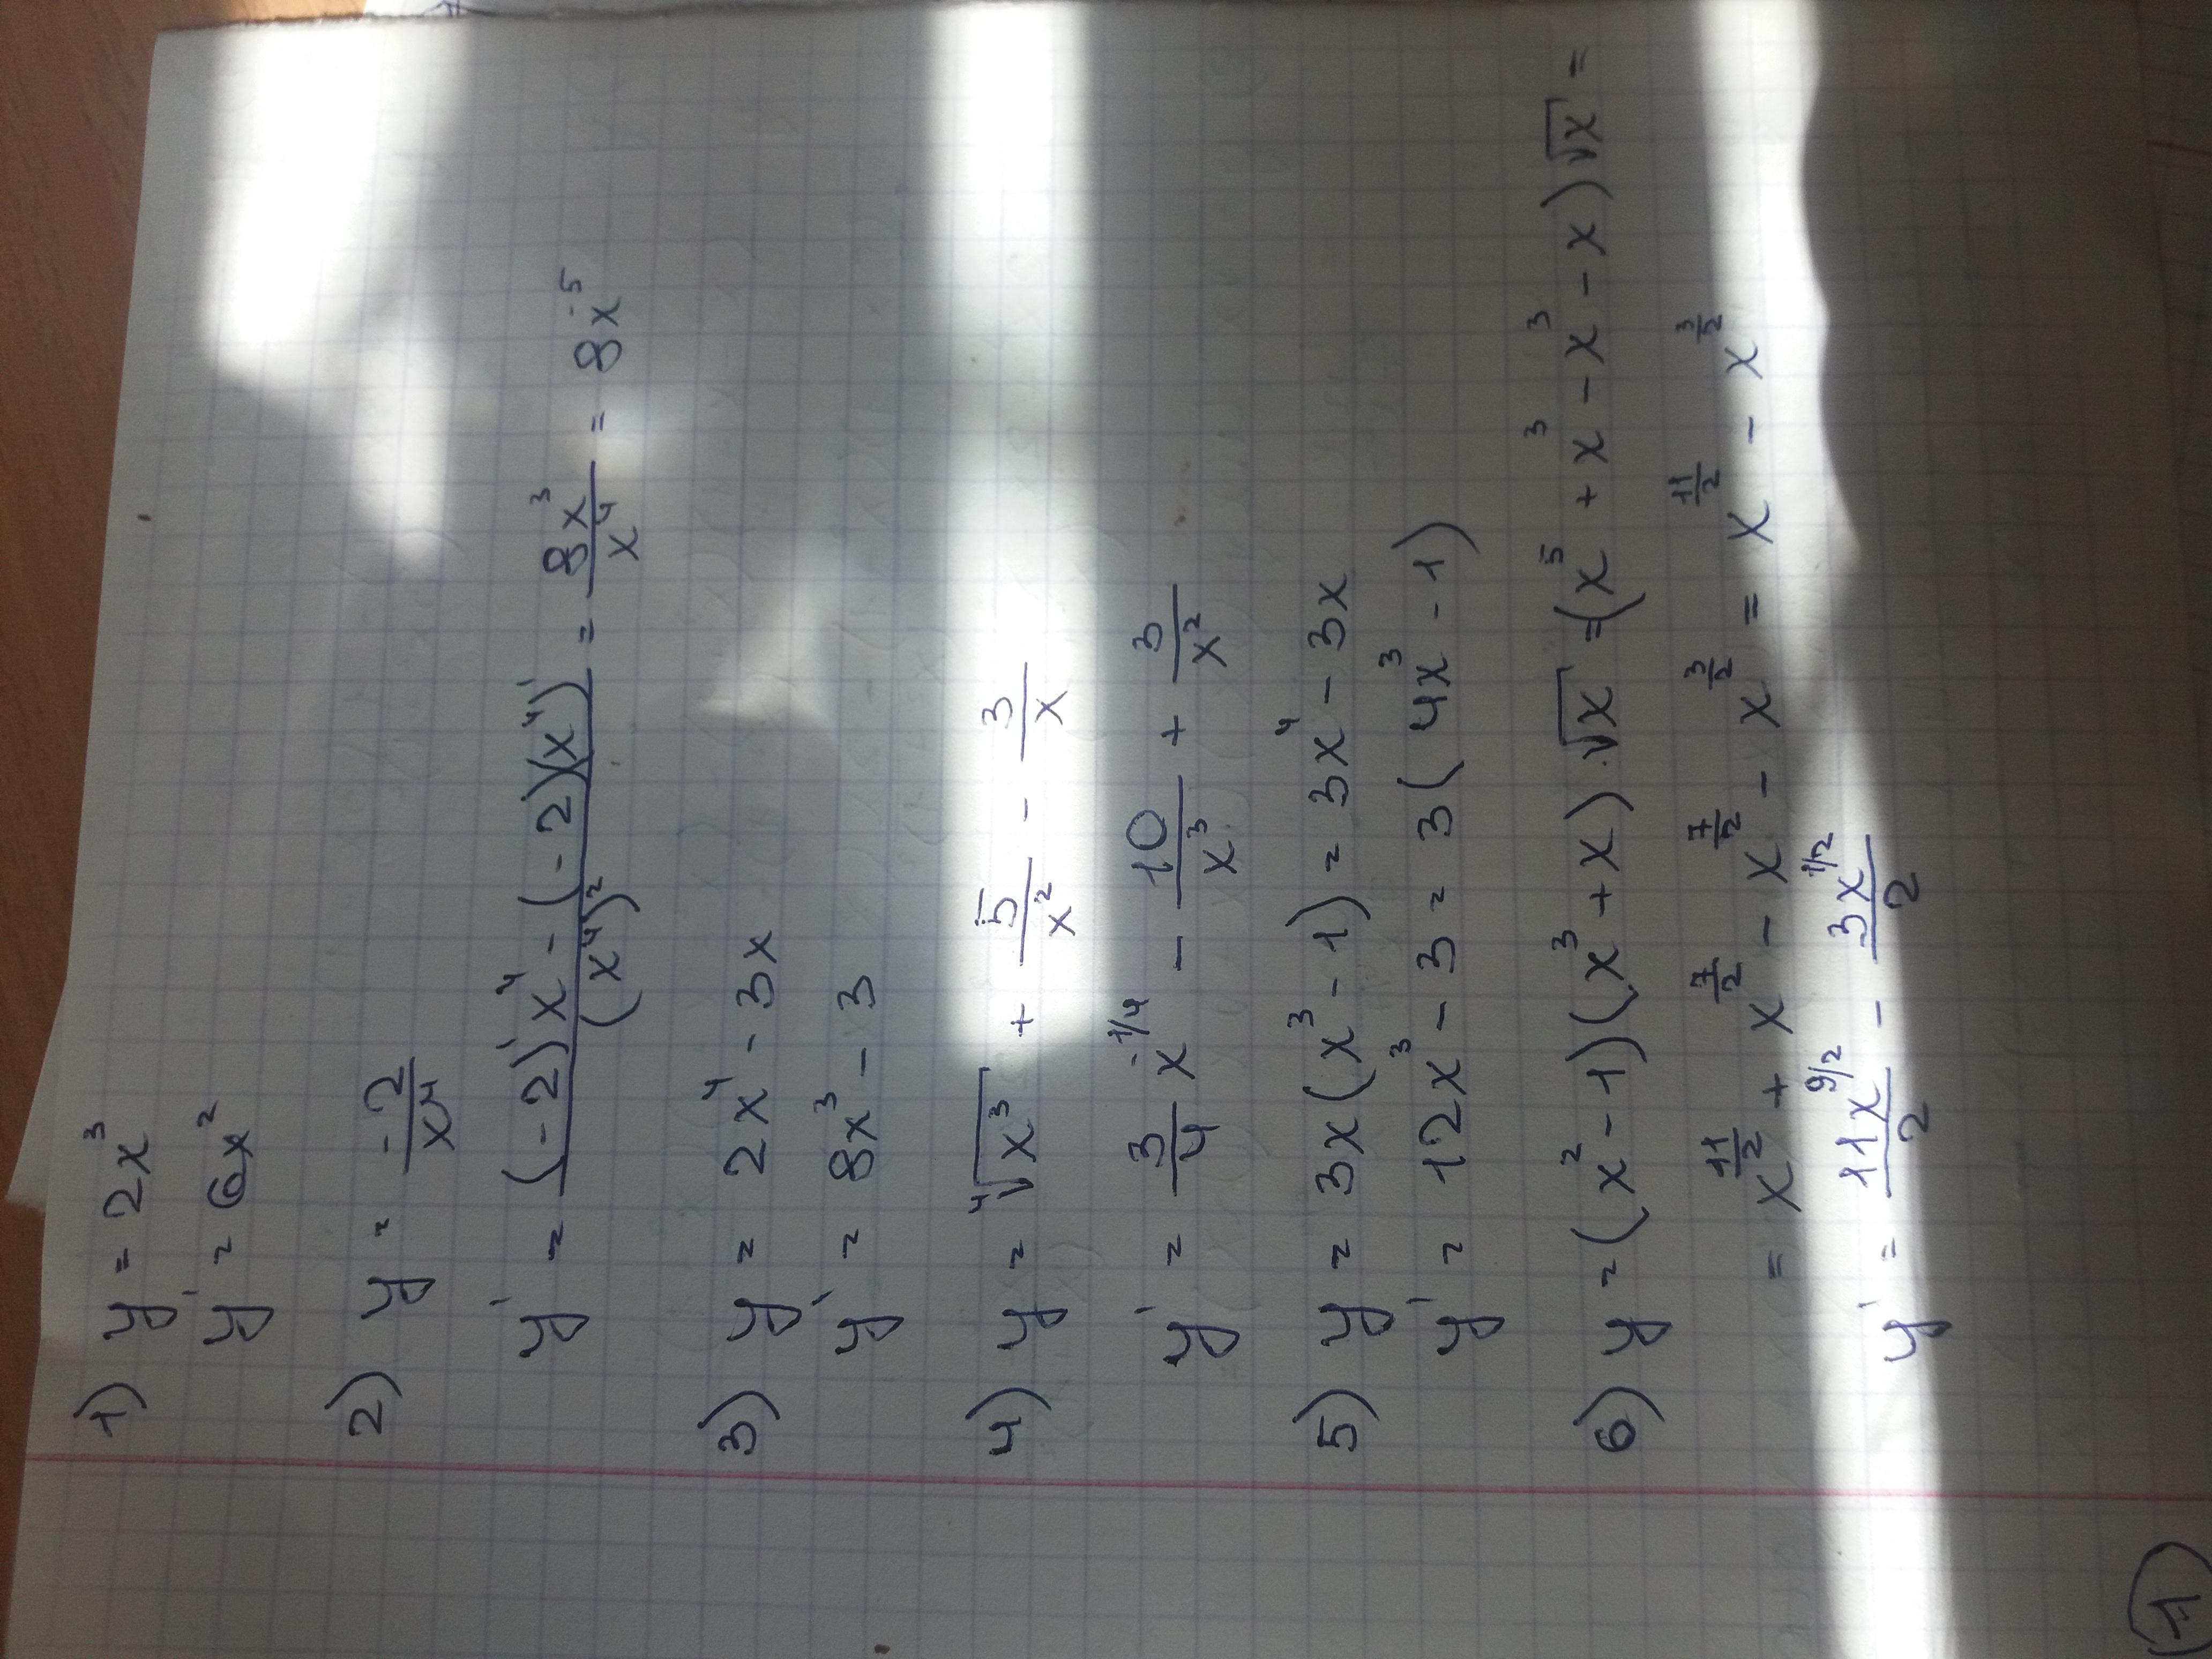 1) y = 2x³
y' = 6x²
2) y = -2/x⁴
y' = ((-2)'x⁴ - (-2)(x⁴)')/(x⁴)² = 8x³/x⁴ = 8x⁻⁵
3) y = 2x⁴ - 3x
y' = 8x³ - 3
4) y = ⁴√x³ + 5/x² - 3/x
y' = 3/4 x^(-1/4) - 10/x³ + 3/x²
5) y = 3x(x³ - 1) = 3x⁴ - 3x
y' = 12x³ - 3 = 3(4x³ - 1)
6) y = (x² - 1)(x³ + x)·√x = (x⁵ + x³ - x³ - x)√x =
= x^(11/2) + x^(7/2) - x^(7/2) - x^(3/2) = x^(11/2) - x^(3/2)
y' = 11x^(9/2)/2 - 3x^(1/2)/2
1